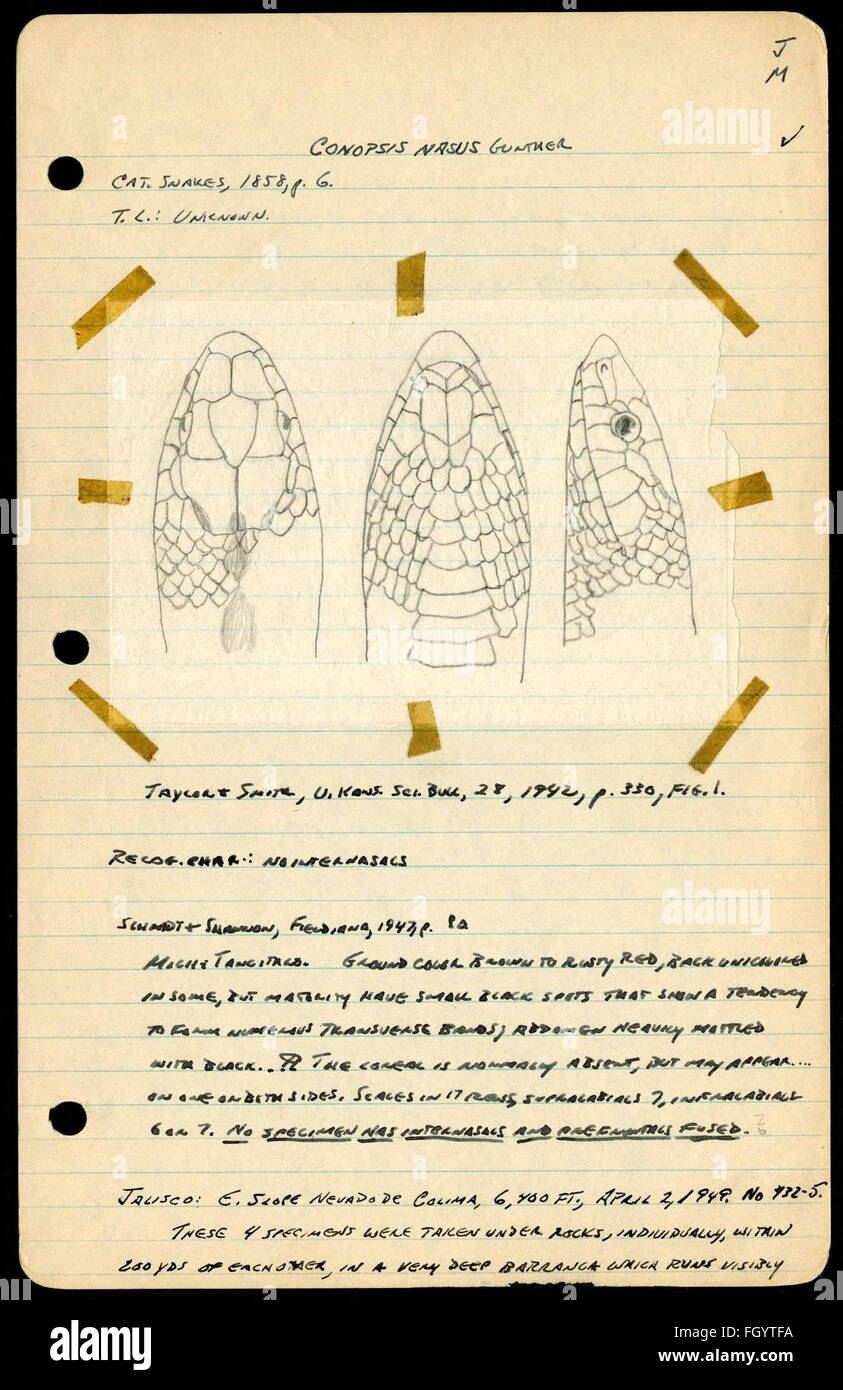 J
M
✓
CONOPSIS NASUS GUNTHER
CAT. SNAKES, 1858, p. 6.
T. L.: UNKNOWN.
TAYLOR + SMITH, U. KANS. SCI. BULL, 28, 1942, p. 330, FIG. 1.
RECOG. CHAR.: NO INTERNASALS
SCHMIDT + SHANNON, FIELDIANA, 1947, p.
MICH: TANCITARO. GROUND COLOR BROWN TO RUSTY RED, BACK UNICOLORED
IN SOME, BUT MAJORITY HAVE SMALL BLACK SPOTS THAT SHOW A TENDENCY
TO FORM NUMEROUS TRANSVERSE BANDS; ABDOMEN HEAVILY MOTTLED
WITH BLACK.. THE LOREAL IS NORMALLY ABSENT, BUT MAY APPEAR....
ON ONE OR BOTH SIDES. SCALES IN 17 ROWS, SUPRALABIALS 7, INFRALABIALS
6 OR 7. NO SPECIMEN HAS INTERNASALS AND PREFRONTALS FUSED.
JALISCO: E. SLOPE NEVADO DE COLIMA, 6,400 FT., APRIL 2, 1949. NO 432-5.
THESE 4 SPECIMENS WERE TAKEN UNDER ROCKS, INDIVIDUALLY, WITHIN
200 YDS OF EACH OTHER, IN A VERY DEEP BARRANCA WHICH RUNS VISIBLY
alamy
Image ID: FGYTFA
www.alamy.com